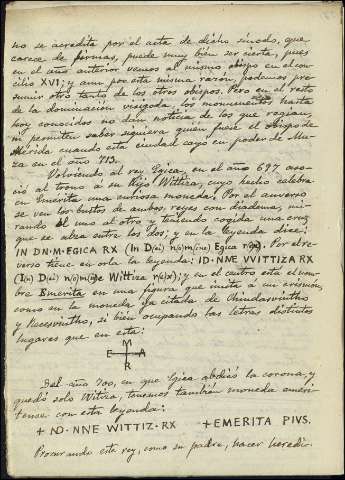 no se acredita por el acta de dicho sínodo, que
carece de firmas, puede muy bien ser cierta, pues
en el año anterior vemos al mismo obispo en el con-
cilio XVI; y aun por esta misma razón, podemos pre-
sumir otro tanto de los otros obispos. Pero en el resto
de la dominación visigoda, los monumentos hasta
hoy conocidos no dan noticia de los que regían,
ni permiten saber siquiera quien fuese el obispo de
Mérida cuando esta ciudad cayó en poder de Mu-
za en el año 713.
Volviendo al rey Egica, en el año 697 aso-
ció al trono a su hijo Wittiza, cuyo hecho celebra
en Emerita una curiosa moneda. Por el anverso
se ven los bustos de ambos reyes con diadema, mi-
rando el uno al otro y teniendo cogida una cruz
que se alza entre los dos; y en la leyenda dice:
IN DN·M·EGICA RX (In D(ei) n(o)m(ine) Egica r(e)x). Por el re-
verso tiene en orla la leyenda: ID·NNE VVITTIZA RX
(I(n) D(ei) n(o)m(i)ne Wittiza r(e)x); y en el centro está el nom-
bre Emerita en una figura que imita á un crismón,
como en la moneda ya citada de Chindasvintho
y Recesvintho, si bien ocupando las letras distintos
lugares que en esta:
M
E A
R
Del año 700, en que Egica abdicó la corona, y
quedó solo Witiza, tenemos también moneda emeri-
tense con esta leyenda:
+ ND·NNE WITTIZ·RX +EMERITA PIVS.
Procurando este rey, como su padre, hacer heredi-